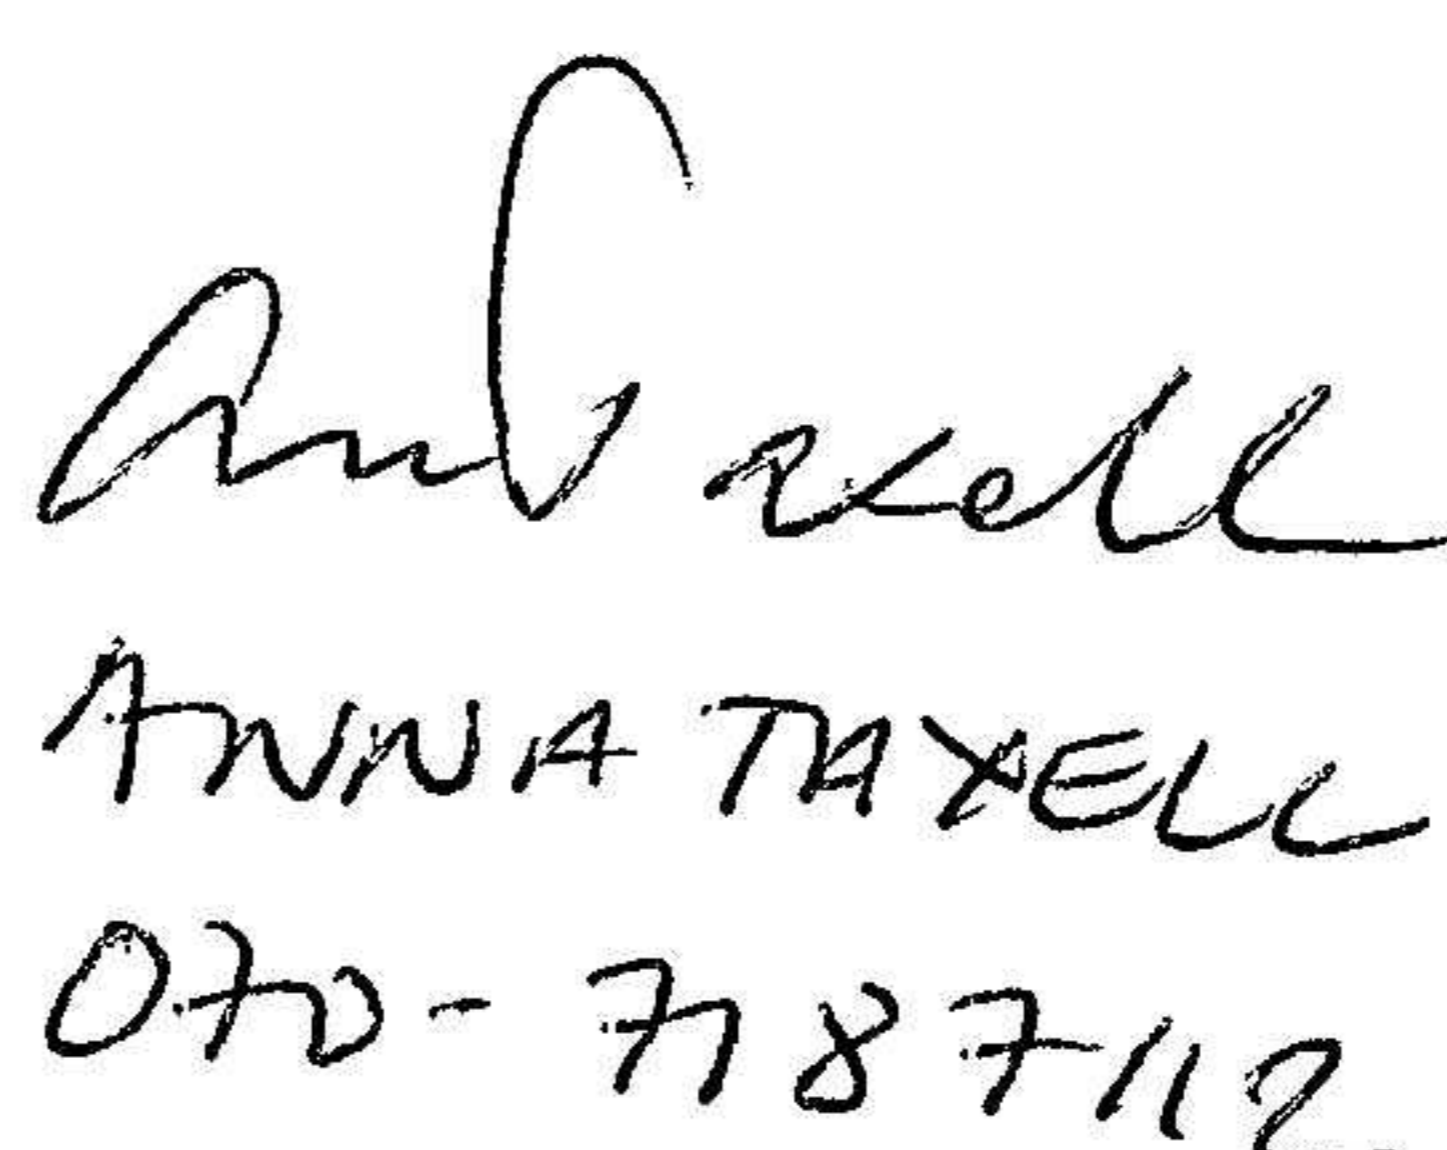 Anna Taxell
ANNA TAXELL
070-7187112